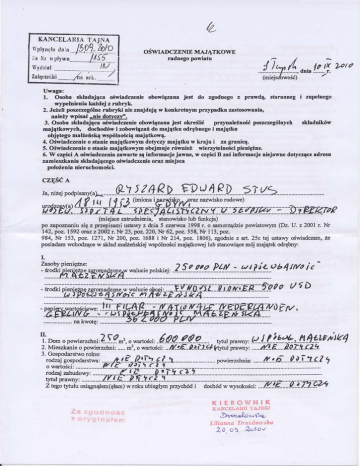 KANCELARIA TAJNA
Wpłynęło dnia 13.09.2010
Za Nr wpływu 1855
Wydział
Załączniki na ark.
OŚWIADCZENIE MAJĄTKOWE
radnego powiatu
Słupsk dnia 10 IX 2010
(miejscowość)
Uwaga:
1. Osoba składająca oświadczenie obowiązana jest do zgodnego z prawdą, starannego i zupełnego
wypełnienia każdej z rubryk.
2. Jeżeli poszczególne rubryki nie znajdują w konkretnym przypadku zastosowania,
należy wpisać „nie dotyczy".
3. Osoba składająca oświadczenie obowiązana jest określić przynależność poszczególnych składników
majątkowych, dochodów i zobowiązań do majątku odrębnego i majątku
objętego małżeńską wspólnością majątkową.
4. Oświadczenie o stanie majątkowym dotyczy majątku w kraju i za granicą.
5. Oświadczenie o stanie majątkowym obejmuje również wierzytelności pieniężne.
6. W części A oświadczenia zawarte są informacje jawne, w części B zaś informacje niejawne dotyczące adresu
zamieszkania składającego oświadczenie oraz miejsca
położenia nieruchomości.
CZĘŚĆ A
Ja, niżej podpisany(a), RYSZARD EDWARD STUS
(imiona i nazwisko oraz nazwisko rodowe)
urodzony(a) 18 III 1953 GDYNI
WOJEW. SZPITAL SPECJALISTYCZNY W SŁUPSKU - DYREKTOR
(miejsce zatrudnienia, stanowisko lub funkcja)
po zapoznaniu się z przepisami ustawy z dnia 5 czerwca 1998 r. o samorządzie powiatowym (Dz. U. z 2001 r. Nr
142, poz. 1592 oraz z 2002 r. Nr 23, poz. 220, Nr 62, poz. 558, Nr 113, poz.
984, Nr 153, poz. 1271, Nr 200, poz. 1688 i Nr 214, poz. 1806), zgodnie z art. 25c tej ustawy oświadczam, że
posiadam wchodzące w skład małżeńskiej wspólności majątkowej lub stanowiące mój majątek odrębny:
I.
Zasoby pieniężne:
- środki pieniężne zgromadzone w walucie polskiej: 250000 PLN - WSPÓŁWŁASNOŚĆ
MAŁŻEŃSKA
- środki pieniężne zgromadzone w walucie obcej: FUNDUSZ PIONIER 5000 USD
WSPÓŁWŁASNOŚĆ MAŁŻEŃSKA
- papiery wartościowe: III FILAR - NATIONALE NEDERLANDEN.
GERLING - WSPÓŁWŁASNOŚĆ MAŁŻEŃSKA
na kwotę: 362000 PLN
II.
1. Dom o powierzchni: 250 m², o wartości: 600000 tytuł prawny: WSPÓŁWŁ. MAŁŻEŃSKA
2. Mieszkanie o powierzchni: m², o wartości: NIE DOTYCZY tytuł prawny: NIE DOTYCZY
3. Gospodarstwo rolne:
rodzaj gospodarstwa: NIE DOTYCZY powierzchnia: NIE DOTYCZY
o wartości: NIE DOTYCZY
rodzaj zabudowy: NIE DOTYCZY
tytuł prawny: NIE DOTYCZY
Z tego tytułu osiągnąłem(ęłam) w roku ubiegłym przychód i dochód w wysokości: NIE DOTYCZY
Za zgodność
z oryginałem
KIEROWNIK
KANCELARII TAJNEJ
Lilianna Drozdowska
20.09.2010r